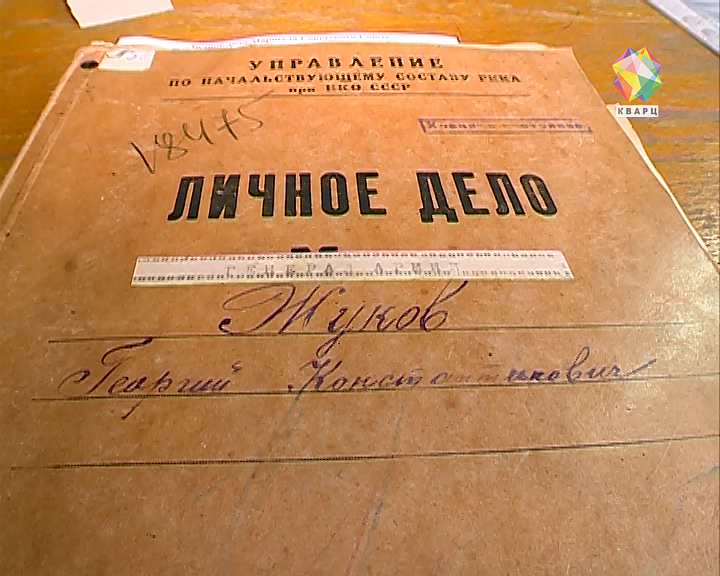 КВАРЦ
УПРАВЛЕНИЕ
ПО НАЧАЛЬСТВУЮЩЕМУ СОСТАВУ РККА
при НКО СССР
V8475
ЛИЧНОЕ ДЕЛО
ГЕНЕРАЛ АРМИИ
Жуков
Георгий Константинович